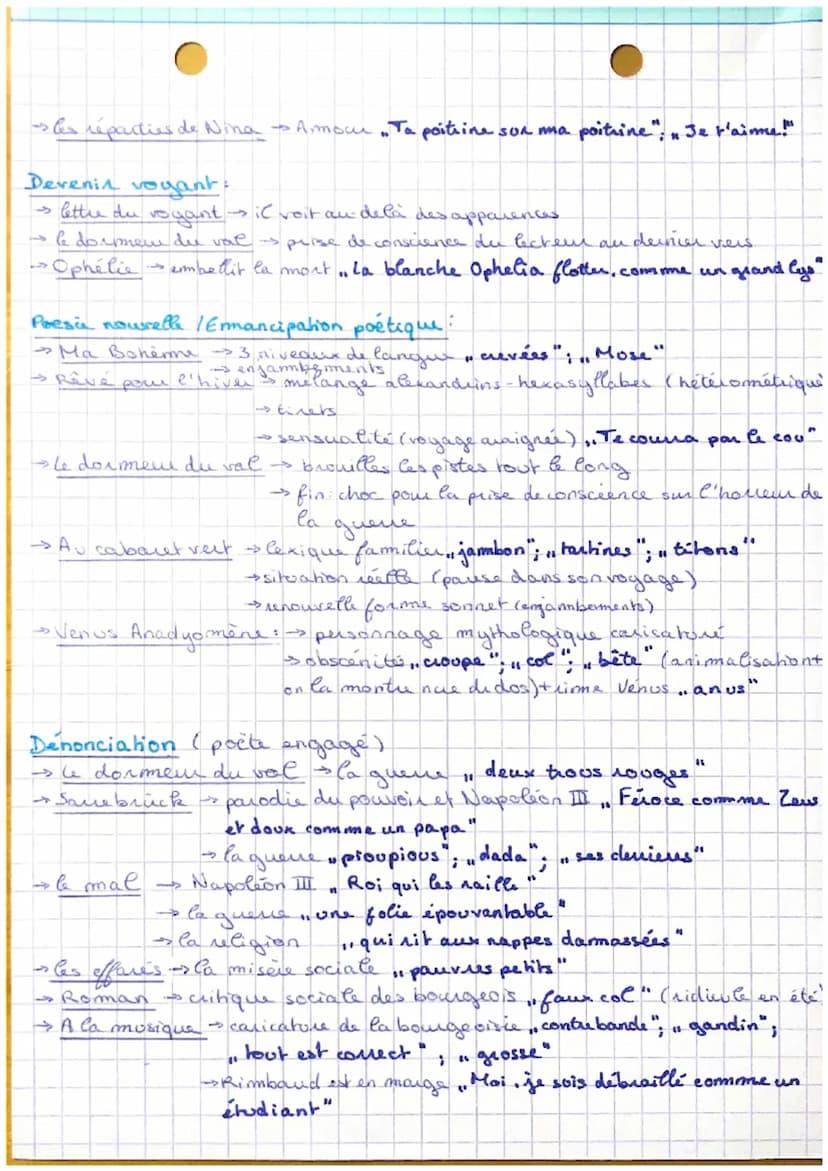 → les réparties de Nina → Amour „Ta poitrine sur ma poitrine"; „Je t'aime!"
Devenir voyant:
→ lettre du voyant → il voit au-delà des apparences
→ le dormeur du val → prise de conscience du lecteur au dernier vers
→ Ophélie → embellit la mort „La blanche Ophelia flotter, comme un grand lys"
Poesie nouvelle / Emmancipation poétique:
→ Ma Bohème → 3 niveaux de langue „crevées"; „Mose"
→ enjambements
→ Rêvé pour l'hiver → mélange alexandrins-hexasyllabes (hétérométrique
→ tirets
→ sensualité (voyage araignée) „Te courra par le cou"
→ Le dormeur du val → brouilles les pistes tout le long
→ fin: choc pour la prise de conscience sur l'horreur de
la guerre
→ Au cabaret vert → lexique familier „jambon"; „tartines"; „tétons"
→ situation réelle (pause dans son voyage)
→ renouvelle forme sonnet (enjambements)
→ Venus Anadyomène: → personnage mythologique caricaturé
→ obscénité „croupe"; „col"; „bête" (animalisation+
on la montre nue de dos) + rime Vénus „anus"
Dénonciation (poète engagé)
→ Le dormeur du val → la guerre „deux trous rouges"
→ Sarrebrück → parodie du pouvoir et Napoléon III „Féroce comme Zeus
et doux comme un papa"
→ la guerre „pioupious"; „dada"; „ses derniers"
→ le mal → Napoléon III „Roi qui les raille"
→ la guerre „une folie épouvantable"
→ la religion „qui rit aux nappes damassées"
→ les effarés → la misère sociale „pauvres petits"
→ Roman → critique sociale des bourgeois „faux col" (ridicule en été)
→ A la musique → caricature de la bourgeoisie „contrebande"; „gandin";
„tout est correct"; „grosse"
→ Rimbaud est en marge „Moi, je suis débraillé comme un
étudiant"